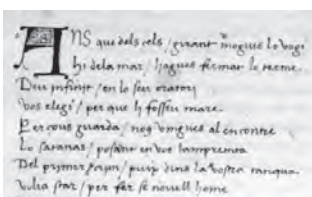 ANS que dels cels / girant mogues lo vogi
hi dela mar / hagues fermat lo terme
Deu infinit / en lo seu oratori
vos elegi / per que li fosseu mare
Per çous guarda / nog vingues al encontre
Lo satanas / posant en vos lampremta
Del primer / puix dins la vostra
volia star / per fer se novell home